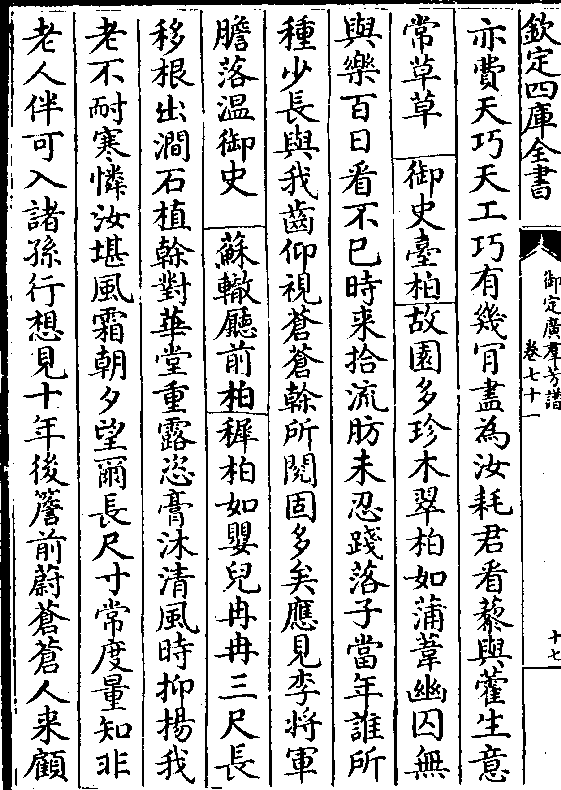 欽定四庫全書
御定廣羣芳譜
卷七十一
十七
亦費天巧天工巧有幾肎盡為汝耗君看藜與藿生意
常草草 御史臺柏故園多珍木翠柏如蒲葦幽囚無
與樂百日看不已時来拾流肪未忍踐落子當年誰所
種少長與我齒仰視蒼蒼榦所閱固多矣應見李將軍
膽落温御史 蘇轍廳前柏穉柏如嬰兒冉冉三尺長
移根出澗石植榦對華堂重露恣膏沐清風時抑揚我
老不耐寒憐汝堪風霜朝夕望爾長尺寸常度量知非
老人伴可入諸孫行想見十年後簷前蔚蒼蒼人来顧